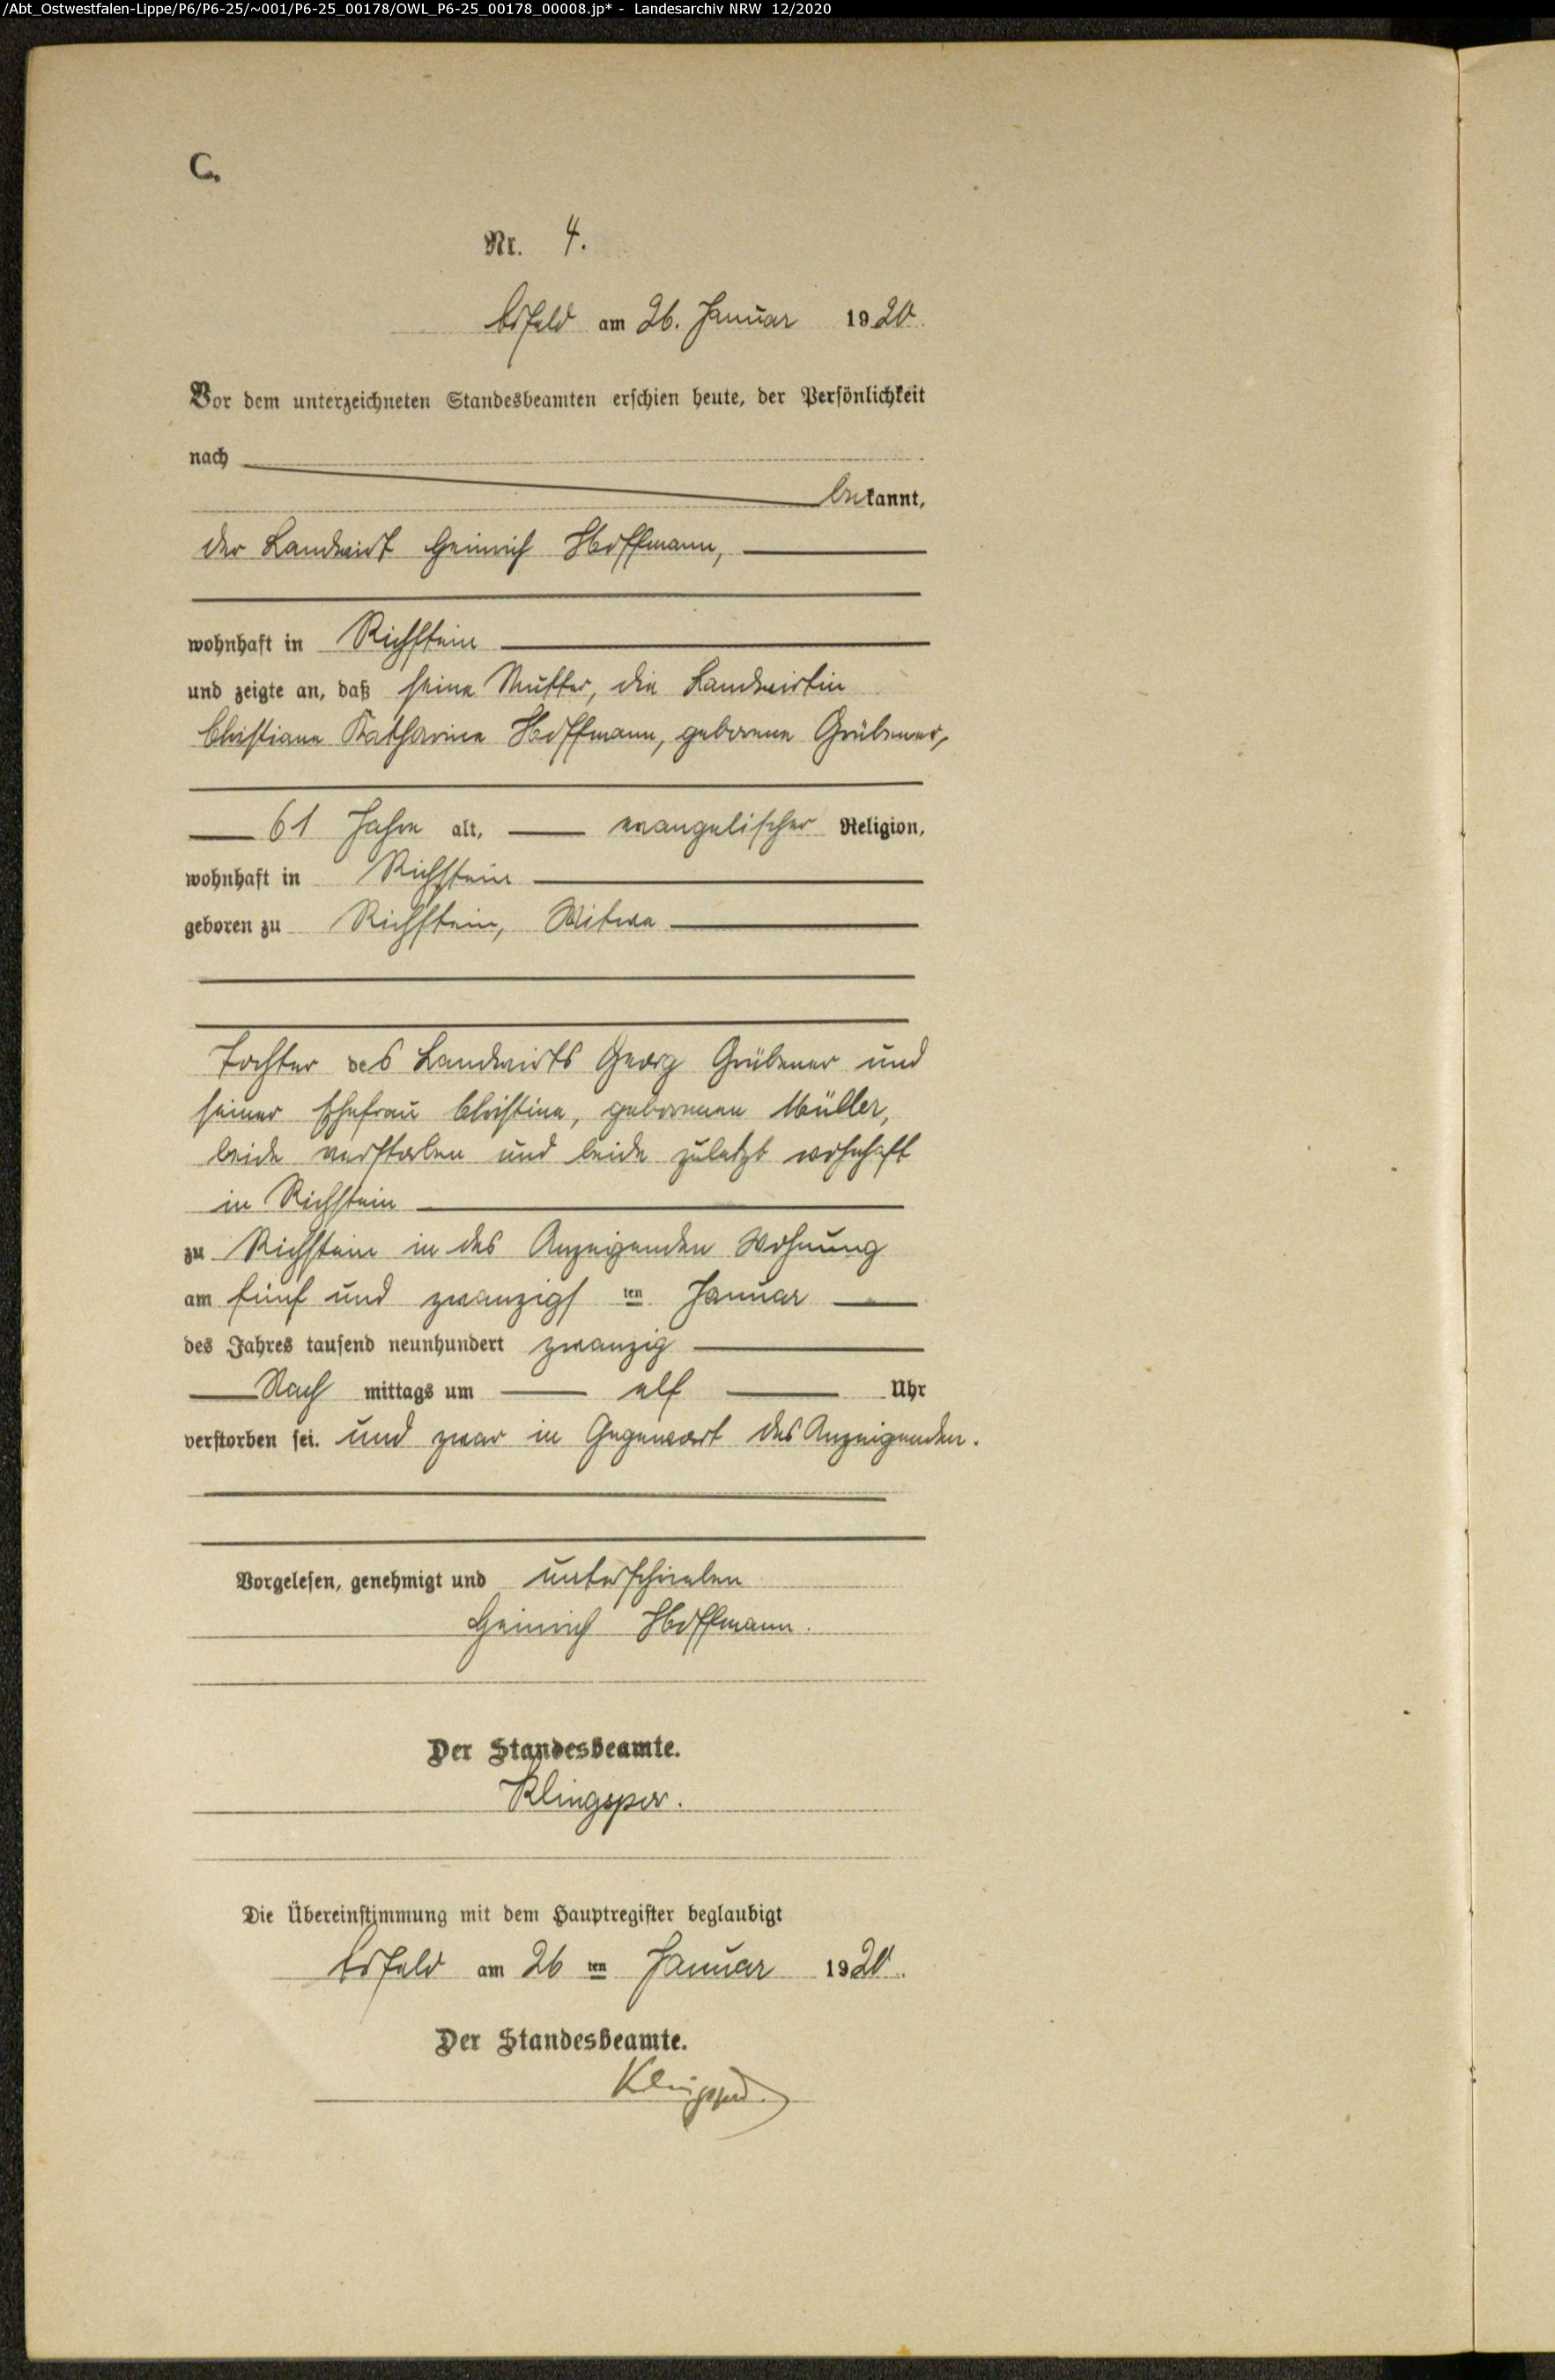 /Abt_Ostwestfalen-Lippe/P6/P6-25/~001/P6-25_00178/OWL_P6-25_00178_00008.jp* - Landesarchiv NRW 12/2020
C.
Nr. 4.
am 26. Januar 1920.
Vor dem unterzeichneten Standesbeamten erschien heute, der Persönlichkeit
nach
bekannt,
der Landwirt Heinrich Hoffmann,
wohnhaft in Richstein
und zeigte an, daß seine Mutter, die Landwirtin
Christiane Katharina Hoffmann, geborene Grübener,
61 Jahre alt, evangelischer Religion,
wohnhaft in Richstein
geboren zu Richstein, Witwe
Tochter des Landwirts Georg Grübener und
seiner Ehefrau Christine, geborenen Müller,
beide verstorben und beide zuletzt wohnhaft
in Richstein
zu Richstein in des Anzeigenden Wohnung
am fünf und zwanzigsten Januar
des Jahres tausend neunhundert zwanzig
Nachmittags um elf Uhr
verstorben sei. und zwar in Gegenwart des Anzeigenden.
Vorgelesen, genehmigt und unterschrieben
Heinrich Hoffmann.
Der Standesbeamte.
Klingspor.
Die Übereinstimmung mit dem Hauptregister beglaubigt
am 26ten Januar 1920.
Der Standesbeamte.
Klingspor.